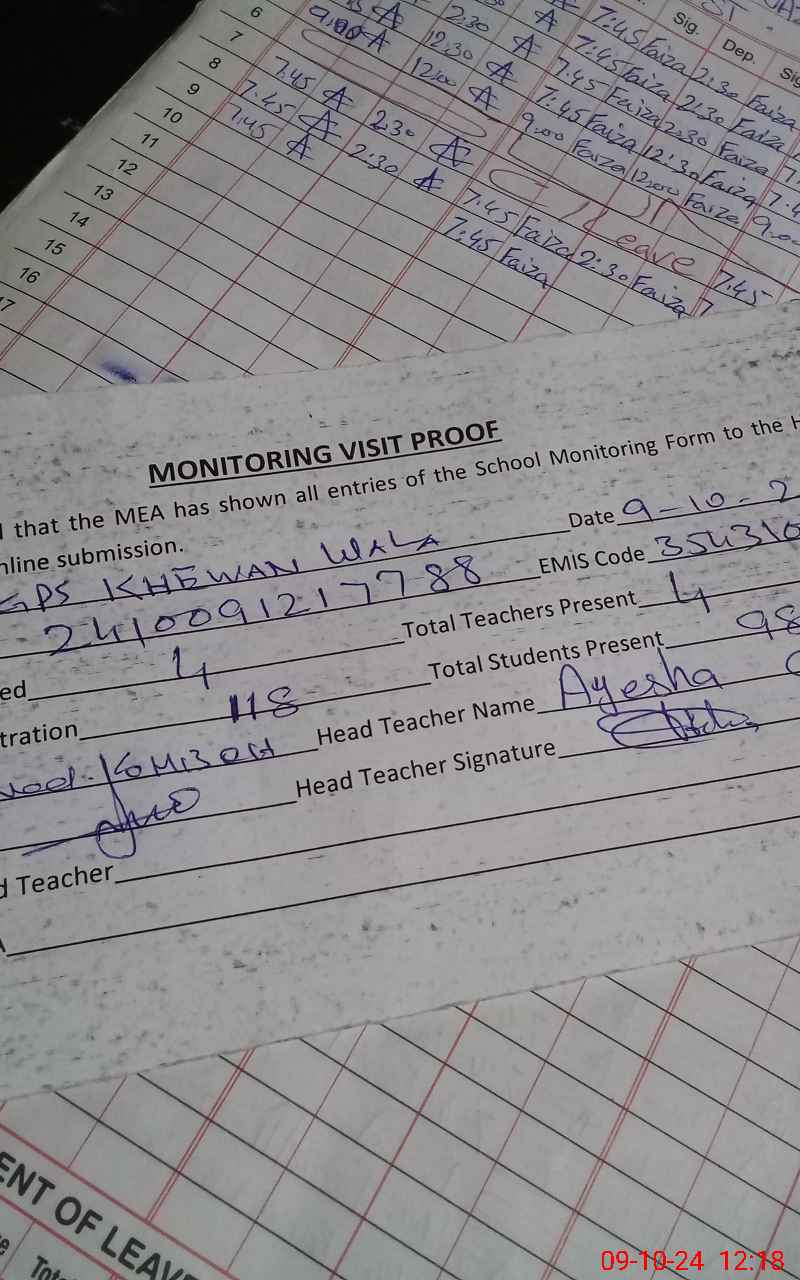 Sig. Dep. Sig
6 A 2:30 A 7:45 Faiza 2:30 Faiza
7 9:00 A 12:30 A 7:45 Faiza 2:30 Faiza
8 12:00 A 7:45 Faiza 2:30 Faiza
9 7.45 A 2:30 A 7:45 Faiza 12:30 Faiza
10 7.45 A 2:30 A 9:00 Faiza 12:00 Faiza 9:00
11 7.45 A Leave
12 7:45 Faiza 2:30 Faiza 7:45
13 7:45 Faiza
14
15
16
17
MONITORING VISIT PROOF
that the MEA has shown all entries of the School Monitoring Form to the H
nline submission.
GPS KHEWAN WALA Date 9-10-2
2410091217788 EMIS Code 354310
ed 4 Total Teachers Present 4
tration 118 Total Students Present 98
Head Teacher Name Ayesha
Head Teacher Signature
d Teacher
ENT OF LEAVE
Tota
09-10-24 12:18